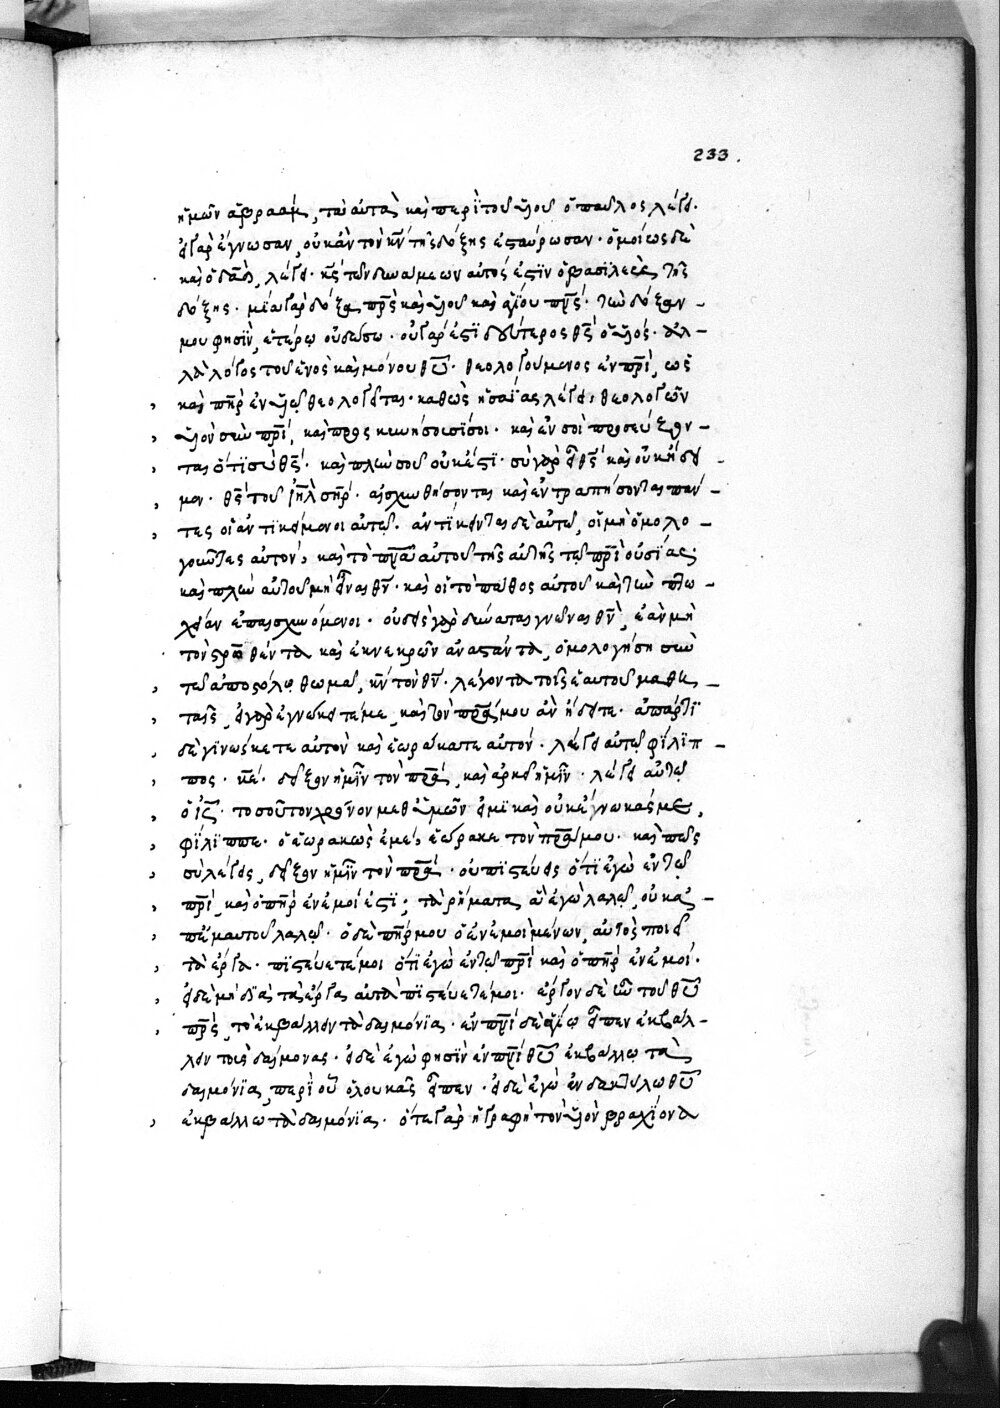 233.
ἡμῶν ἀβραάμ, ταὐτὰ καὶ περὶ τοῦ υἱοῦ ὁ παῦλος λέγει·
εἰ γὰρ ἔγνωσαν, οὐκ ἂν τὸν κν̄ τῆς δόξης ἐσταύρωσαν· ὁμοίως δὲ
καὶ ὁ δᾱδ̄, λέγει· κς̄ τῶν δυνάμεων αὐτός ἐστιν ὁ βασιλεὺς τῆς
δόξης· μία γὰρ δόξα πρ̄ς καὶ υἱοῦ καὶ ἁγίου πνς̄· τὴν δόξαν
μου φησὶν, ἑτέρῳ οὐ δώσω· οὐ γάρ ἐστι δεύτερος θς̄ ὁ υἱός· ἀλ-
λὰ λόγος τοῦ ἑνὸς καὶ μόνου θῡ· θεολογούμενος ἐν πρῑ, ὡς
καὶ πηρ̄ ἐν υἱῷ θεολογεῖται· καθὼς ἡσαΐας λέγει, θεολογῶν
υἱὸν σὺν πρῑ, καὶ προσκυνήσουσί σοι· καὶ ἐν σοὶ προσεύξον-
ται ὅτι σὺ θς̄· καὶ πλὴν σοῦ οὐκ ἔστι· σὺ γὰρ εἶ θς̄ καὶ οὐκ ᾔδει
μεν· θς̄ τοῦ ιη̄λ σηρ̄· αἰσχυνθήσονται καὶ ἐντραπήσονται πάν-
τες οἱ ἀντικείμενοι αὐτῷ· ἀντίκεινται δὲ αὐτῷ, οἱ μὴ ὁμολο-
γοῦντες αὐτὸν, καὶ τὸ πνᾱ αὐτοῦ τῆς αὐτῆς τῷ πρῑ οὐσίας·
καὶ πλὴν αὐτοῦ μὴ εἶναι θν̄· καὶ οἱ τὸ πάθος αὐτοῦ καὶ τὴν πτω-
χείαν ἐπαισχυνόμενοι· οὐδεὶς γὰρ δύναται γνῶναι θν̄, ἐὰν μὴ
τὸν στρωθέντα καὶ ἐκ νεκρῶν ἀναστάντα, ὁμολογήσῃ σὺν
τῷ ἀποστόλῳ θωμᾷ, κν̄ τὸν θν̄· λέγοντα τοῖς ἑαυτοῦ μαθη-
ταῖς, εἰ γὰρ ἐγνώκειτέ με, καὶ τὸν πρᾱ μου ἂν ᾔδειτε· ἀπάρτι
δὲ γινώσκετε αὐτὸν καὶ ἑωράκατε αὐτόν· λέγει αὐτῷ φίλιπ-
πος· κε̄· δεῖξον ἡμῖν τὸν πρᾱ, καὶ ἀρκεῖ ἡμῖν· λέγει αὐτῷ
ὁ ις̄· τοσοῦτον χρόνον μεθ ὑμῶν εἰμὶ καὶ οὐκ ἔγνωκάς με,
φίλιππε· ὁ ἑωρακὼς ἐμὲ, ἑώρακε τὸν πρᾱ μου· καὶ πῶς
σὺ λέγεις, δεῖξον ἡμῖν τὸν πρᾱ· οὐ πιστεύεις ὅτι ἐγὼ ἐν τῷ
πρῑ, καὶ ὁ πηρ̄ ἐν ἐμοί ἐστι; τὰ ῥήματα ἃ ἐγὼ λαλῶ, οὐκ ἀ-
π ἐμαυτοῦ λαλῶ· ὁ δὲ πηρ̄ μου ὁ ἐν ἐμοὶ μένων, αὐτὸς ποιεῖ
τὰ ἔργα· πιστεύετέ μοι ὅτι ἐγὼ ἐν τῷ πρῑ καὶ ὁ πηρ̄ ἐν ἐμοί·
εἰ δὲ μὴ διὰ τὰ ἔργα αὐτὰ πιστεύετέ μοι· ἔργον δὲ ἦν τοῦ θῡ
πρ̄ς, τὸ ἐκβάλλειν τὰ δαιμόνια· ἐν πνῑ δὲ ἁγίῳ εἶπεν ἐκβάλ-
λειν τοὺς δαίμονας· εἰ δὲ ἐγὼ φησὶν ἐν πνῑ θῡ ἐκβάλλω τὰ
δαιμόνια, περὶ οὗ ὁ λουκᾶς εἶπεν· εἰ δὲ ἐγὼ ἐν δακτύλω θῡ
ἐκβάλλω τὰ δαιμόνια· ὅτε γὰρ ἡ γραφὴ τὸν υἱὸν βραχίονα